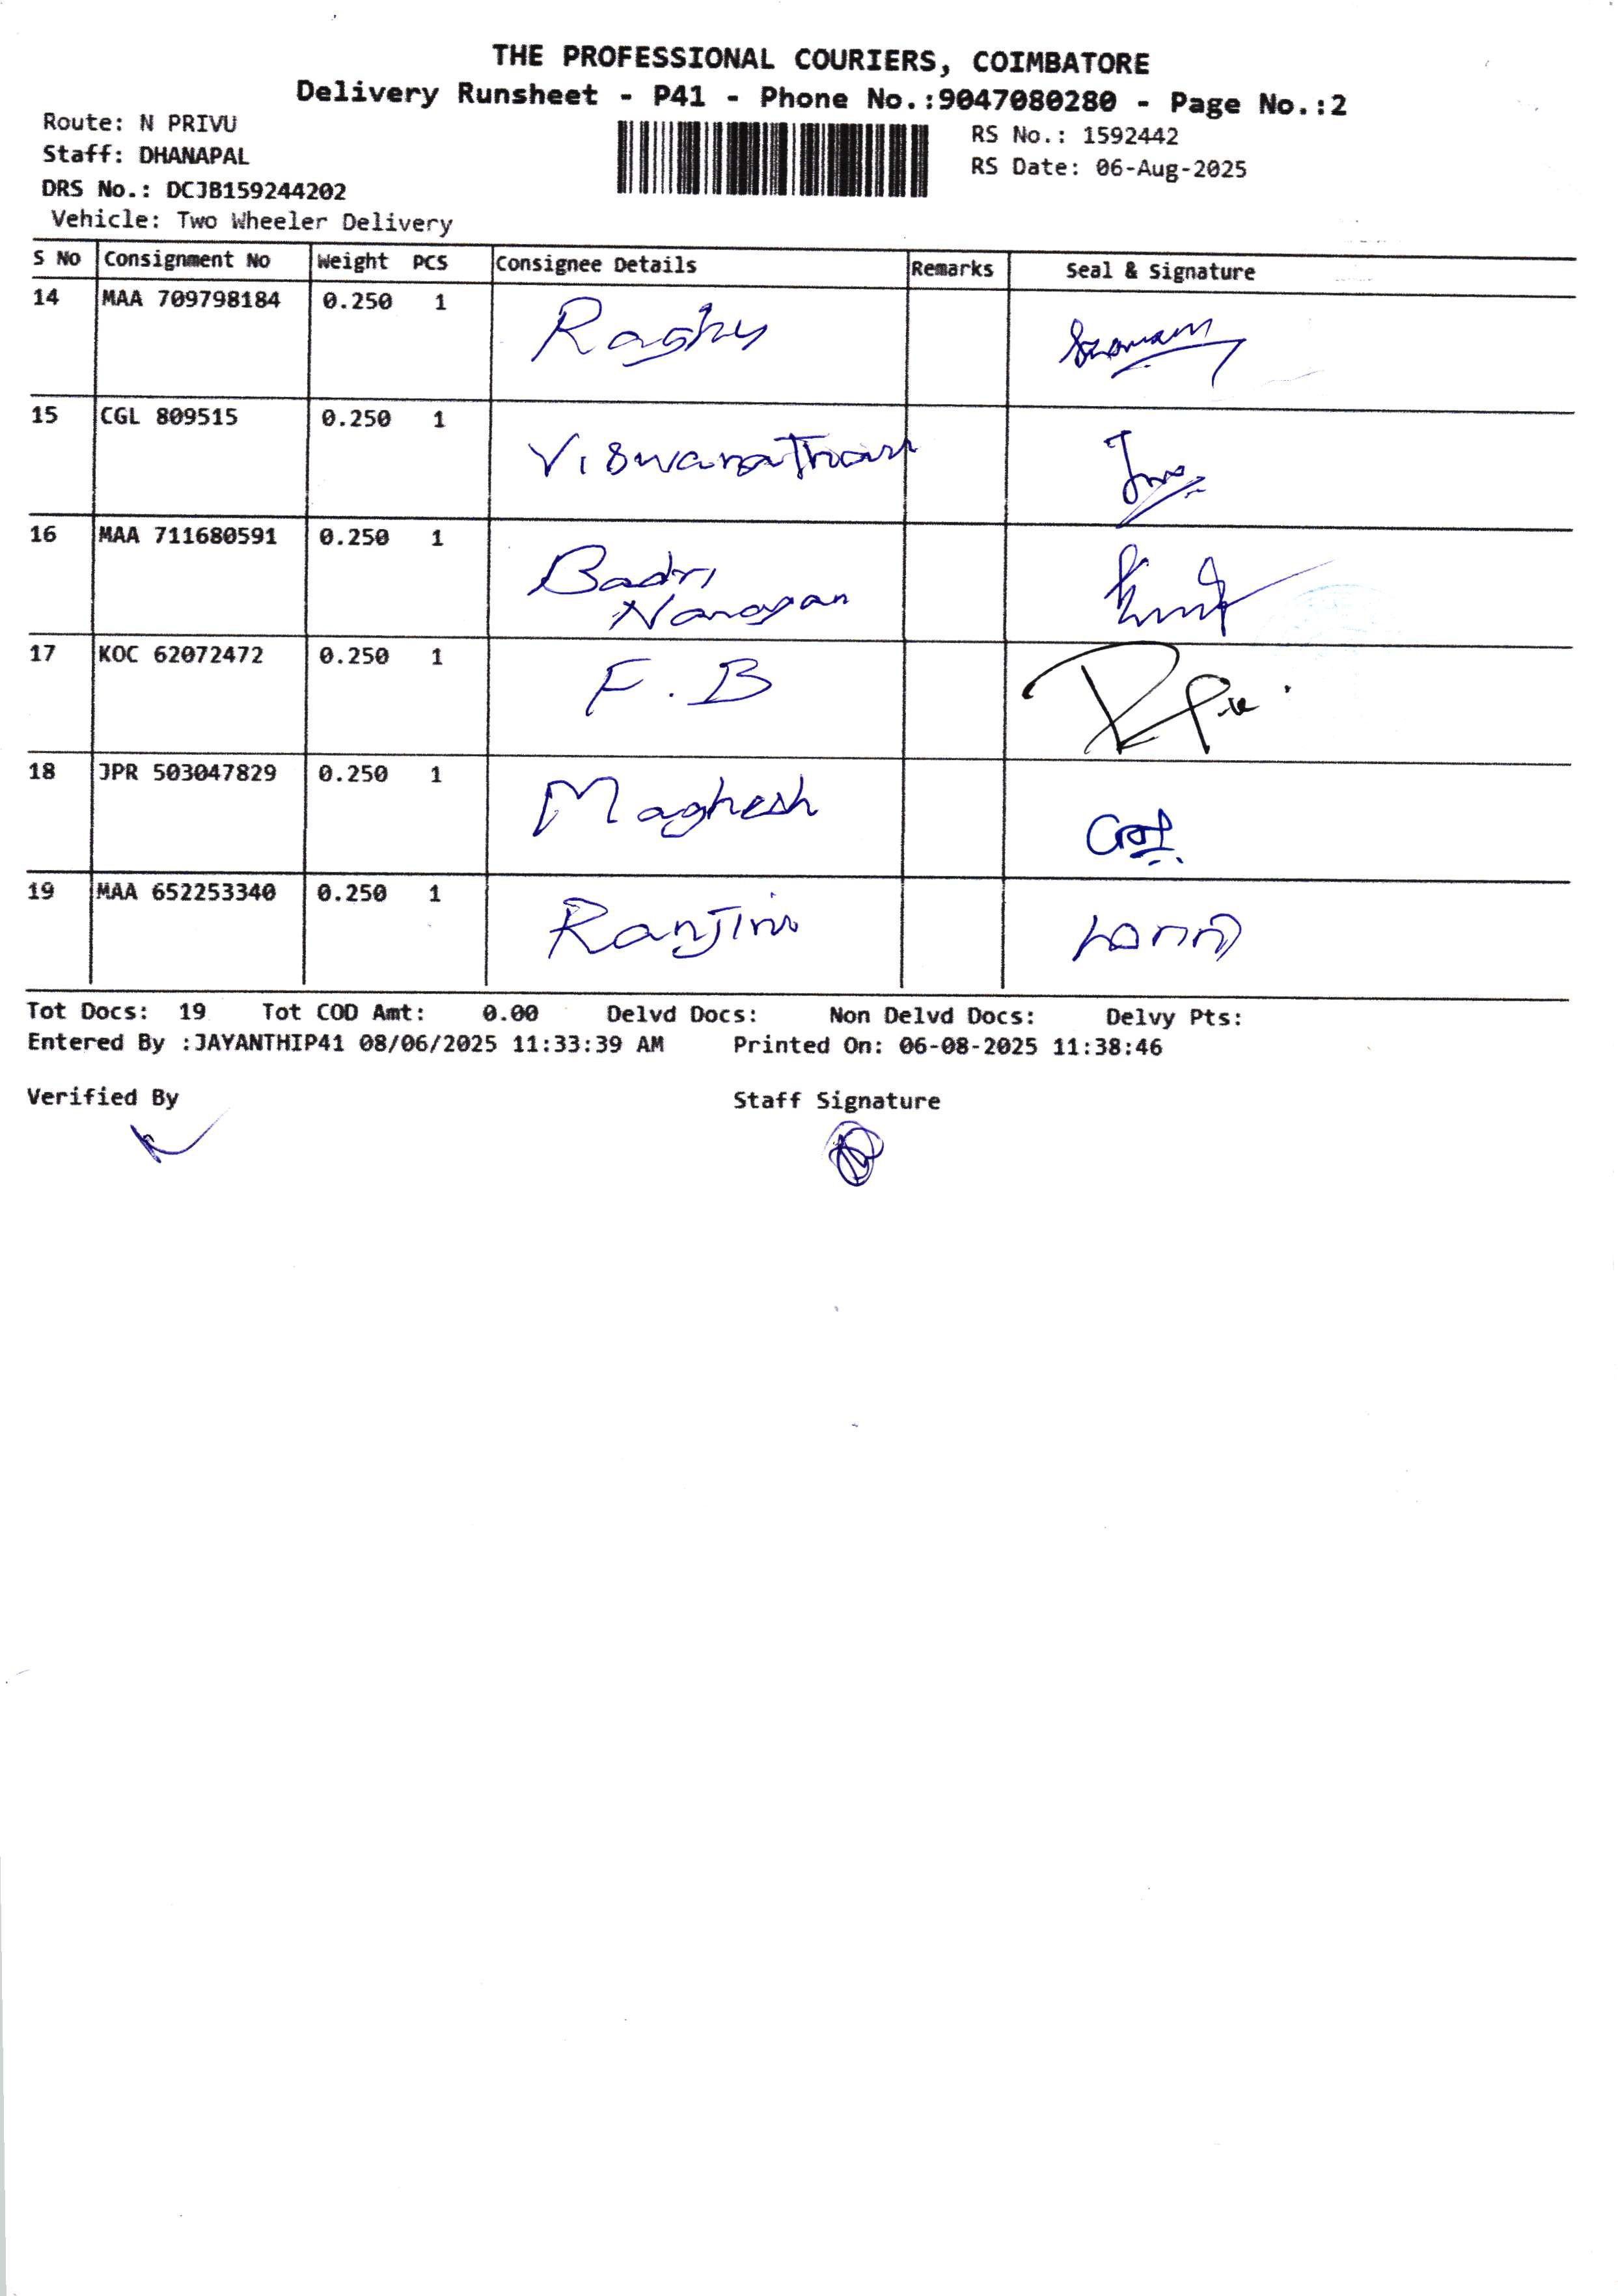 THE PROFESSIONAL COURIERS, COIMBATORE
Delivery Runsheet - P41 - Phone No.:9047080280 - Page No.:2
Route: N PRIVU
RS No.: 1592442
Staff: DHANAPAL
RS Date: 06-Aug-2025
DRS No.: DCJB159244202
Vehicle: Two Wheeler Delivery
S No Consignment No Weight PCS Consignee Details Remarks Seal & Signature
14 MAA 709798184 0.250 1 Raghu
15 CGL 809515 0.250 1 Viswanathan
16 MAA 711680591 0.250 1 Badri
Narayan
17 KOC 62072472 0.250 1 F.B
18 JPR 503047829 0.250 1 Maghesh
19 MAA 652253340 0.250 1 Ranjini
Tot Docs: 19 Tot COD Amt: 0.00 Delvd Docs: Non Delvd Docs: Delvy Pts:
Entered By :JAYANTHIP41 08/06/2025 11:33:39 AM Printed On: 06-08-2025 11:38:46
Verified By Staff Signature